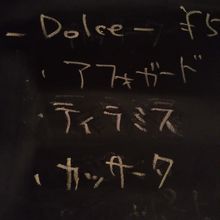 - Dolce -
・アフォガード
・ティラミス
・カッサータ